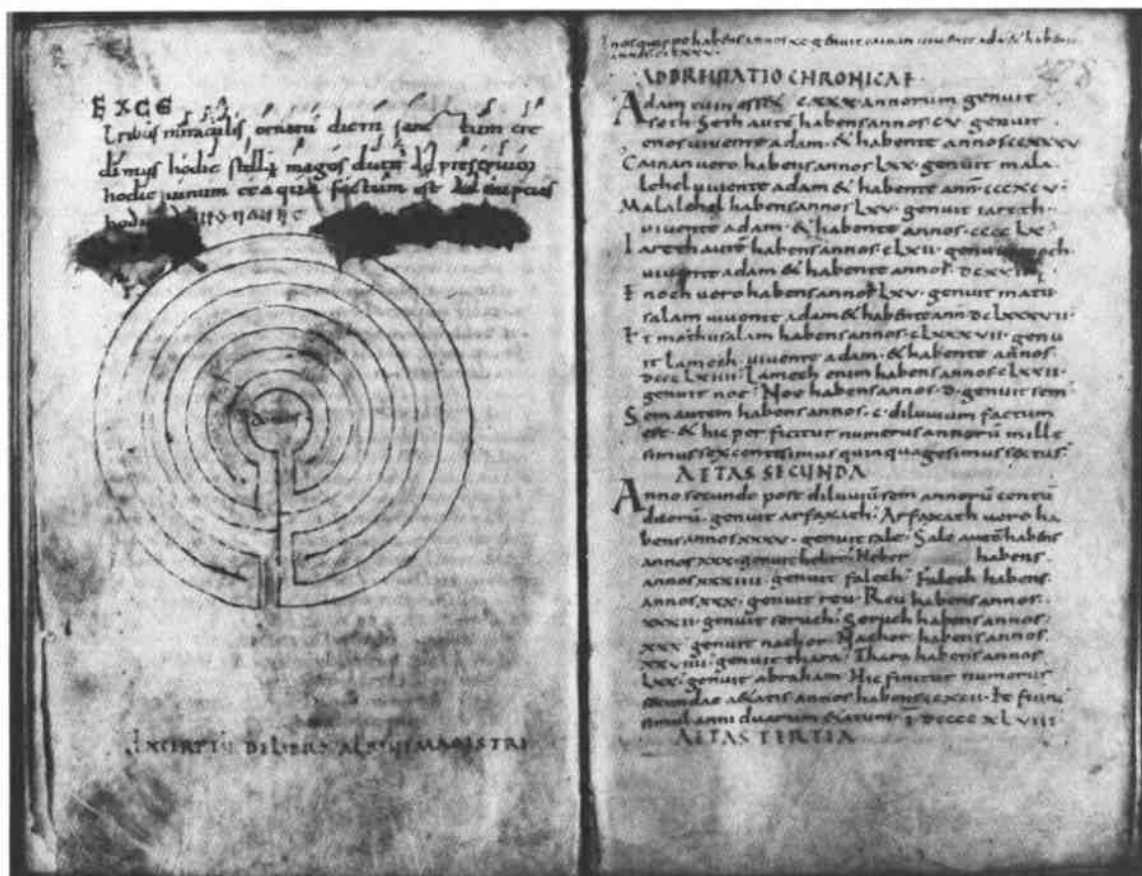 EXCE
Tribus miraculis ornatū diem sanc tum
hodie stellā magos duxit ad presepium
hodie uinum ex aqua factum est ad nuptias
domus
EXCERPTŪ DE LIBRO ALBINI MAGISTRI
annos xc genuit cainan uiuente adā & haben
ADBREUIATIO CHRONICAE
Adam cum esset cxxx annorum genuit
seth. Seth autē habens annos cv genuit
enos uiuente adam & habente annos ccxxxv
Cainan uero habens annos lxx genuit mala
lehel uiuente adam & habente ann cccxcv
Malalehel habens annos lxv genuit iareth
uiuente adam & habente annos cccclx
Iareth autē habens annos clxii genuit enoch
uiuente adam & habente annos
Enoch uero habens annos lxv genuit matu
salam uiuente adam & habente ann dclxxxvii
Et mathusalam habens annos clxxxvii genu
it lamech uiuente adam & habente annos
dccclxxiiii Lamech enim habens annos clxxii
genuit noe Noe habens annos d genuit sem
Sem autem habens annos c diluuium factum
est & hic perficitur numerus annorū mille
simus sexcentesimus quinquagesimus sextus
AETAS SECUNDA
Anno secundo post diluuiū sem annorū centū
duorū genuit arfaxath Arfaxath uero ha
bens annos xxxv genuit sale Sale autē habens
annos xxx genuit heber Heber habens
annos xxxiiii genuit falech Falech habens
annos xxx genuit reu Reu habens annos
xxxii genuit seruch Seruch habens annos
xxx genuit nachor Nachor habens annos
xxviiii genuit thara Thara habens annos
lxx genuit abraham Hic finitur numerus
secundae aetatis annos habens ccxcii Et fiunt
simul anni duarum aetatum Ī dccccxlviii
AETAS TERTIA